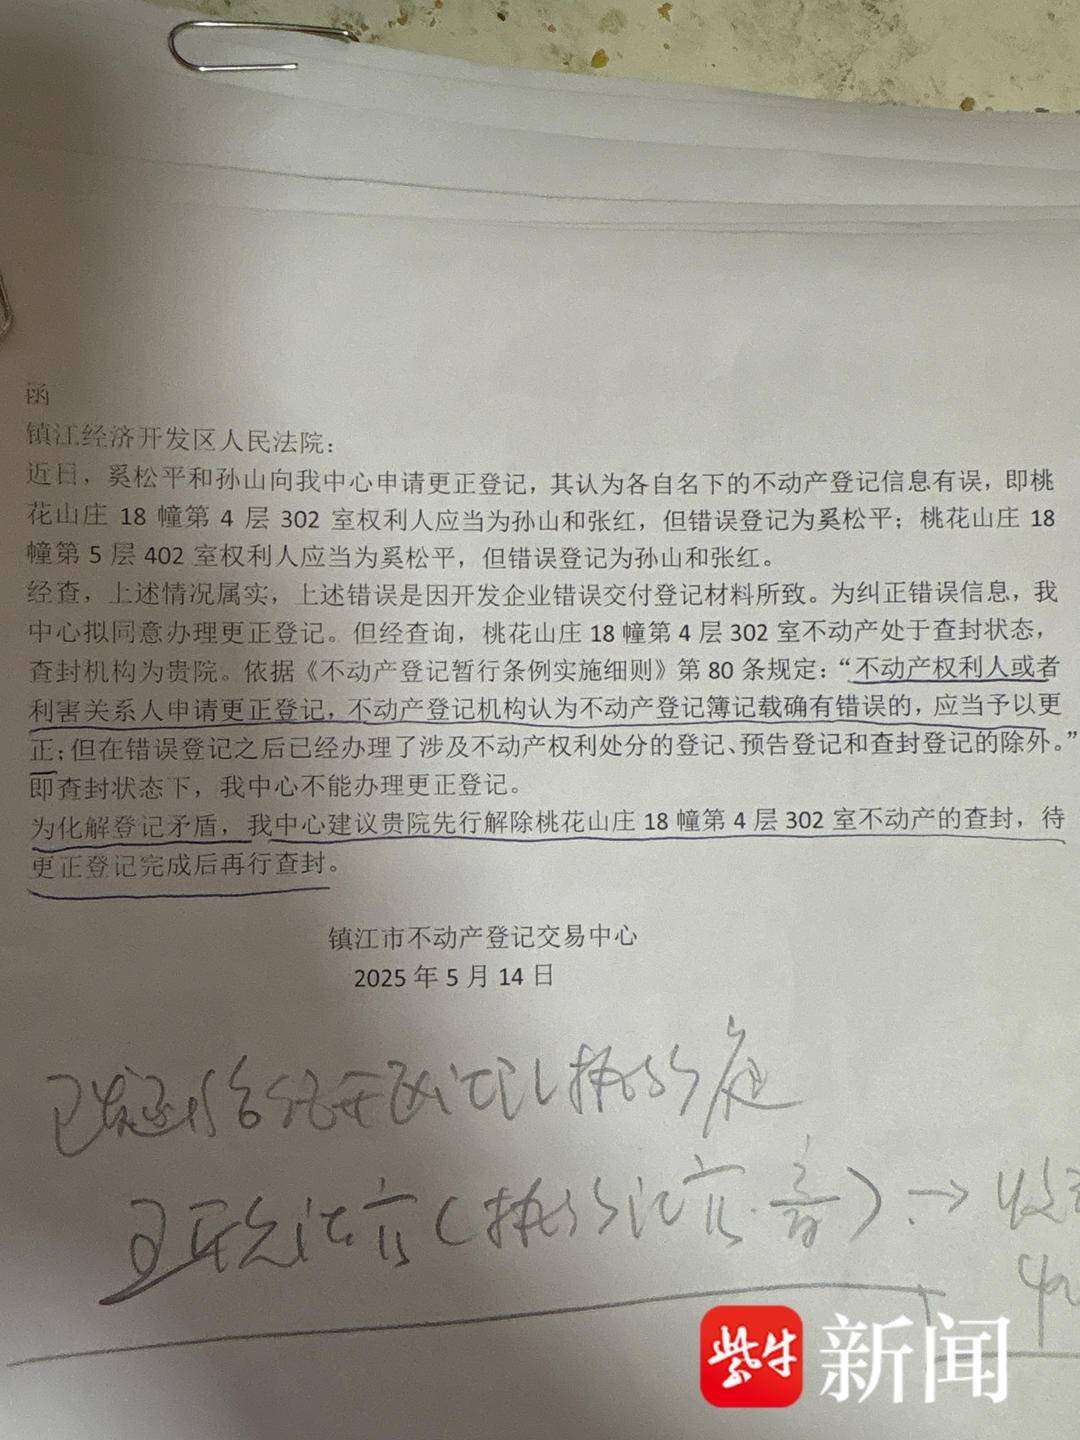 函
镇江经济开发区人民法院：
近日，奚松平和孙山向我中心申请更正登记，其认为各自名下的不动产登记信息有误，即桃
花山庄 18 幢第 4 层 302 室权利人应当为孙山和张红，但错误登记为奚松平；桃花山庄 18
幢第 5 层 402 室权利人应当为奚松平，但错误登记为孙山和张红。
经查，上述情况属实，上述错误是因开发企业错误交付登记材料所致。为纠正错误信息，我
中心拟同意办理更正登记。但经查询，桃花山庄 18 幢第 4 层 302 室不动产处于查封状态，
查封机构为贵院。依据《不动产登记暂行条例实施细则》第 80 条规定：“不动产权利人或者
利害关系人申请更正登记，不动产登记机构认为不动产登记簿记载确有错误的，应当予以更
正；但在错误登记之后已经办理了涉及不动产权利处分的登记、预告登记和查封登记的除外。”
即查封状态下，我中心不能办理更正登记。
为化解登记矛盾，我中心建议贵院先行解除桃花山庄 18 幢第 4 层 302 室不动产的查封，待
更正登记完成后再行查封。
镇江市不动产登记交易中心
2025 年 5 月 14 日
已发送给经开区法院执行庭
法官（执行法官
紫牛新闻